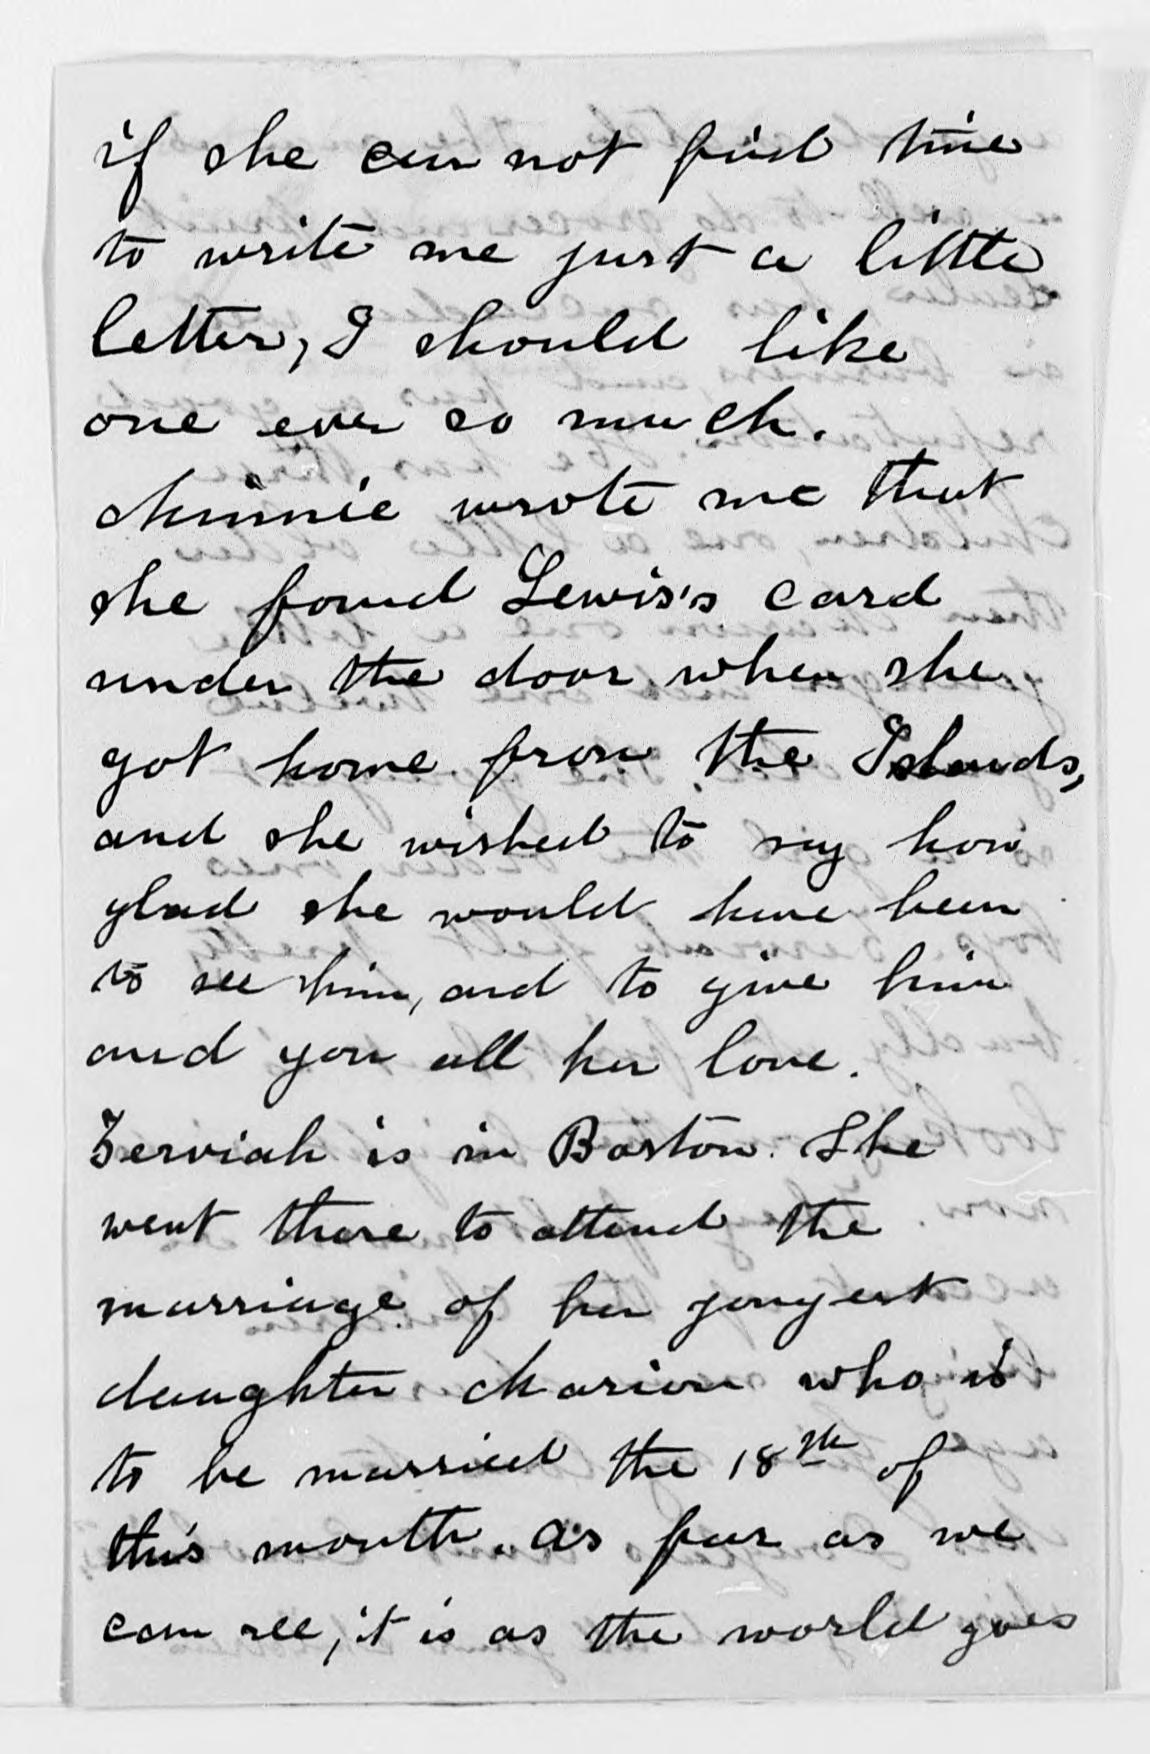 if she can not find time
to write me just a little
letter, I should like
one ever so much.
Minnie wrote me that
she found Lewis's card
under the door when she
got home from the Islands,
and she wished to say how
glad she would have been
to see him, and to give him
and you all her love.
Zerviah is in Boston. She
went there to attend the
marriage of her yongest
daughter Marion who is
to be married the 18th of
this month. As far as we
can see, it is as the world goes